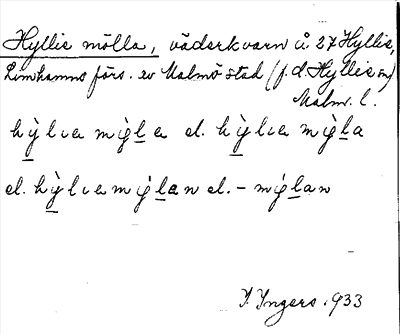 Hyllie mölla, väderkvarn å 27 Hyllie,
Limhamns förs. av Malmö stad (f. d. Hyllie sn)
Malm. l.
hỳlıa mø̀la el. hỳlıa mø̀la
el. hỳlıa mø̀lan el. – mø̀lan
I. Ingers 1933